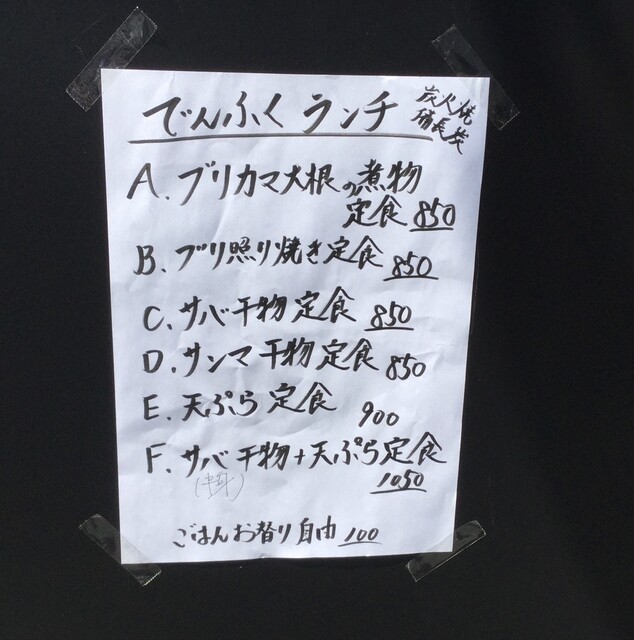 でんふくランチ
炭火焼
備長炭
A. ブリカマ大根の煮物
定食 850
B. ブリ照り焼き定食 850
C. サバ干物定食 850
D. サンマ干物定食 850
E. 天ぷら定食 900
F. サバ干物+天ぷら定食
(半身)
1050
ごはんお替り自由 100